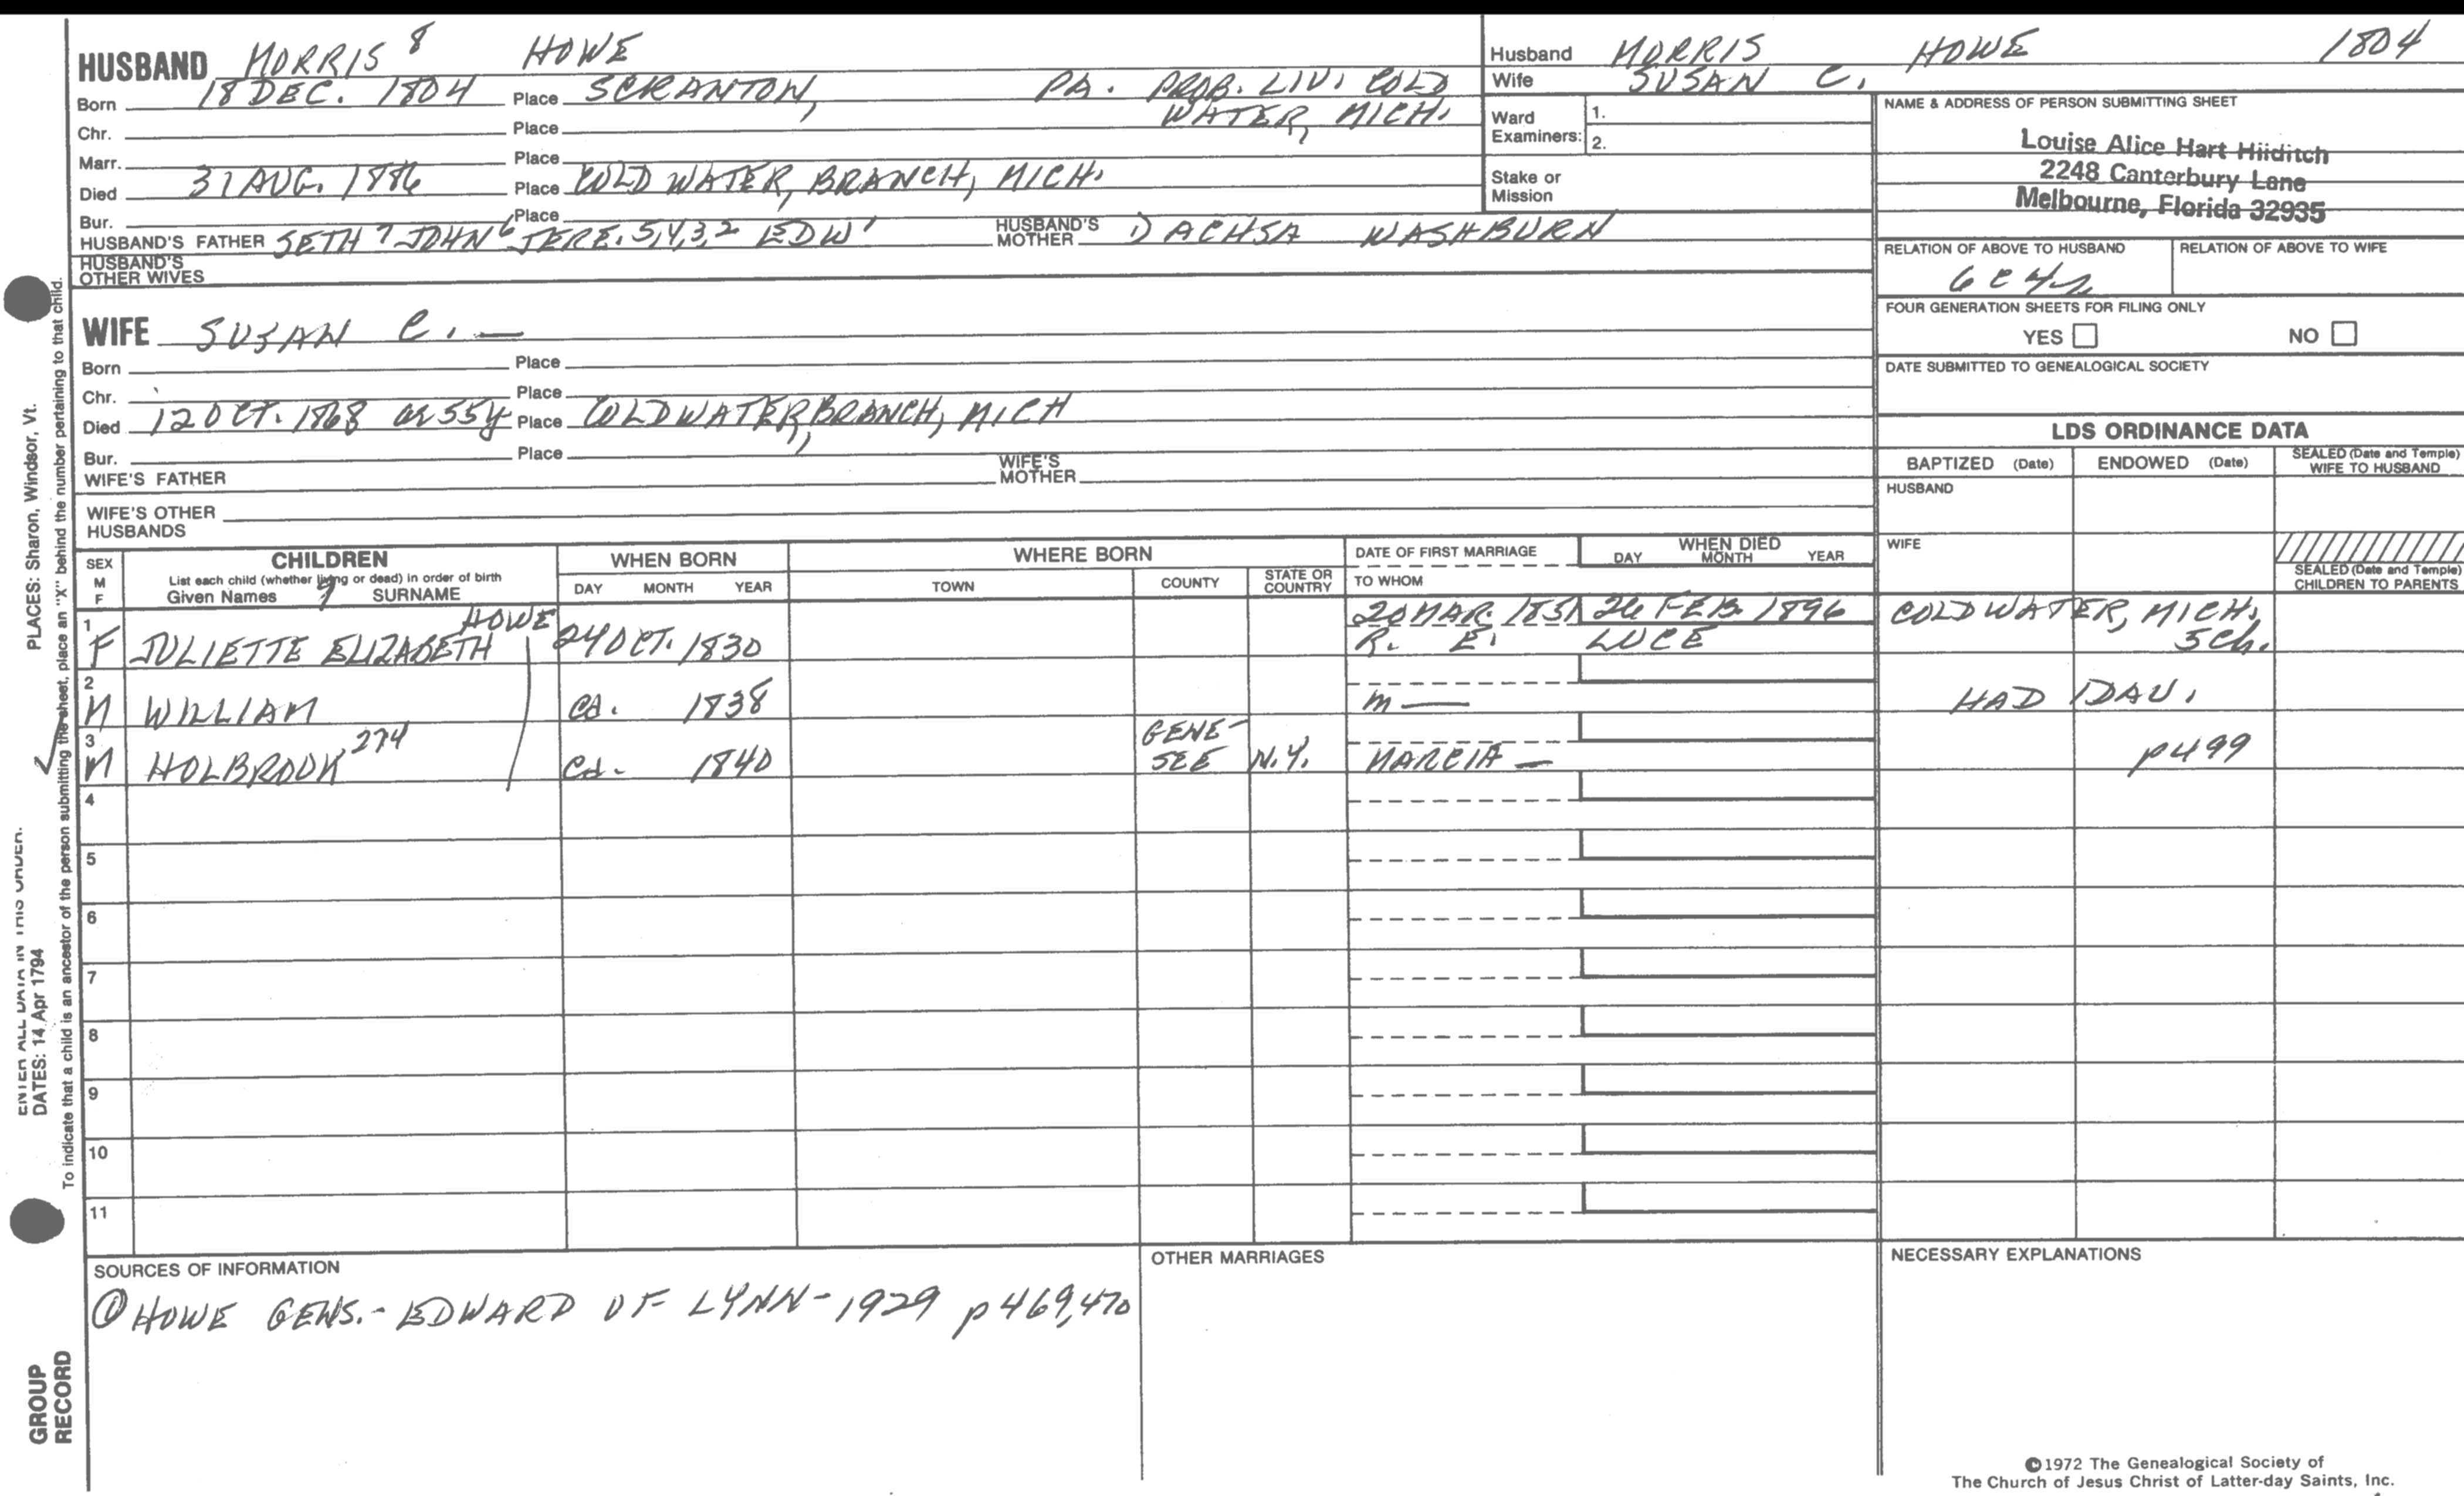 HUSBAND MORRIS 8 HOWE
Born 18 DEC. 1804 Place SCRANTON, PA. PROB. LIV. COLD WATER, MICH.
Chr. Place
Marr. Place
Died 31 AUG. 1886 Place COLD WATER, BRANCH, MICH.
Bur. Place
HUSBAND'S FATHER SETH 7 JOHN 6 JERE. 5,4,3,2 EDW 1 HUSBAND'S MOTHER DACHSA WASHBURN
HUSBAND'S OTHER WIVES
WIFE SUSAN C. —
Born Place
Chr. Place
Died 12 OCT. 1868 ae 55y Place COLDWATER, BRANCH, MICH
Bur. Place
WIFE'S FATHER WIFE'S MOTHER
WIFE'S OTHER HUSBANDS
Husband MORRIS HOWE 1804
Wife SUSAN C.
Ward Examiners: 1. 2.
Stake or Mission
NAME & ADDRESS OF PERSON SUBMITTING SHEET
Louise Alice Hart Hilditch
2248 Canterbury Lane
Melbourne, Florida 32935
RELATION OF ABOVE TO HUSBAND RELATION OF ABOVE TO WIFE
6c4r
FOUR GENERATION SHEETS FOR FILING ONLY
YES NO
DATE SUBMITTED TO GENEALOGICAL SOCIETY
LDS ORDINANCE DATA
BAPTIZED (Date) ENDOWED (Date) SEALED (Date and Temple) WIFE TO HUSBAND
HUSBAND
WIFE
SEALED (Date and Temple) CHILDREN TO PARENTS
SEX M F CHILDREN WHEN BORN WHERE BORN DATE OF FIRST MARRIAGE WHEN DIED
List each child (whether living or dead) in order of birth
Given Names 9 SURNAME DAY MONTH YEAR TOWN COUNTY STATE OR COUNTRY TO WHOM DAY MONTH YEAR
1 F JULIETTE ELIZABETH HOWE 24 OCT. 1830 20 MAR. 1851 26 FEB. 1896 COLDWATER, MICH.
R. E. LUCE 3ch.
2 M WILLIAM ca. 1838 m — HAD 1 DAU.
3 M HOLBROOK 274 ca. 1840 GENE-SEE N.Y. MARCIA — p499
4
5
6
7
8
9
10
11
SOURCES OF INFORMATION
① HOWE GENS. - EDWARD OF LYNN - 1929 p 469,470
OTHER MARRIAGES
NECESSARY EXPLANATIONS
©1972 The Genealogical Society of
The Church of Jesus Christ of Latter-day Saints, Inc.
ENTER ALL DATA IN THIS ORDER.
DATES: 14 Apr 1794 PLACES: Sharon, Windsor, Vt.
To indicate that a child is an ancestor of the person submitting the sheet, place an "X" behind the number pertaining to that child.
GROUP RECORD